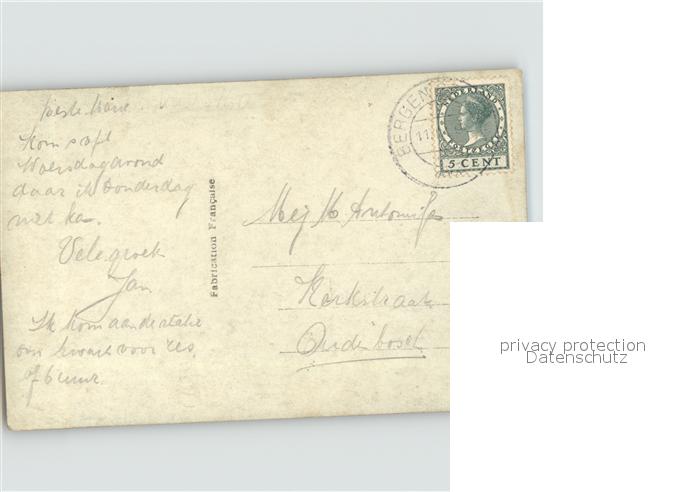 Beste Marie
Kom s.v.p.
Woensdagavond
daar ik Donderdag
niet kan.
Vele groet
Jan
Ik kom aan de statie
om kwart voor zes
of 6 uur.
Fabrication Française
BERGEN
11
NEDERLAND
5 CENT
Mej M. Antonissen
Kerkstraat
Oudenbosch
privacy protection
Datenschutz